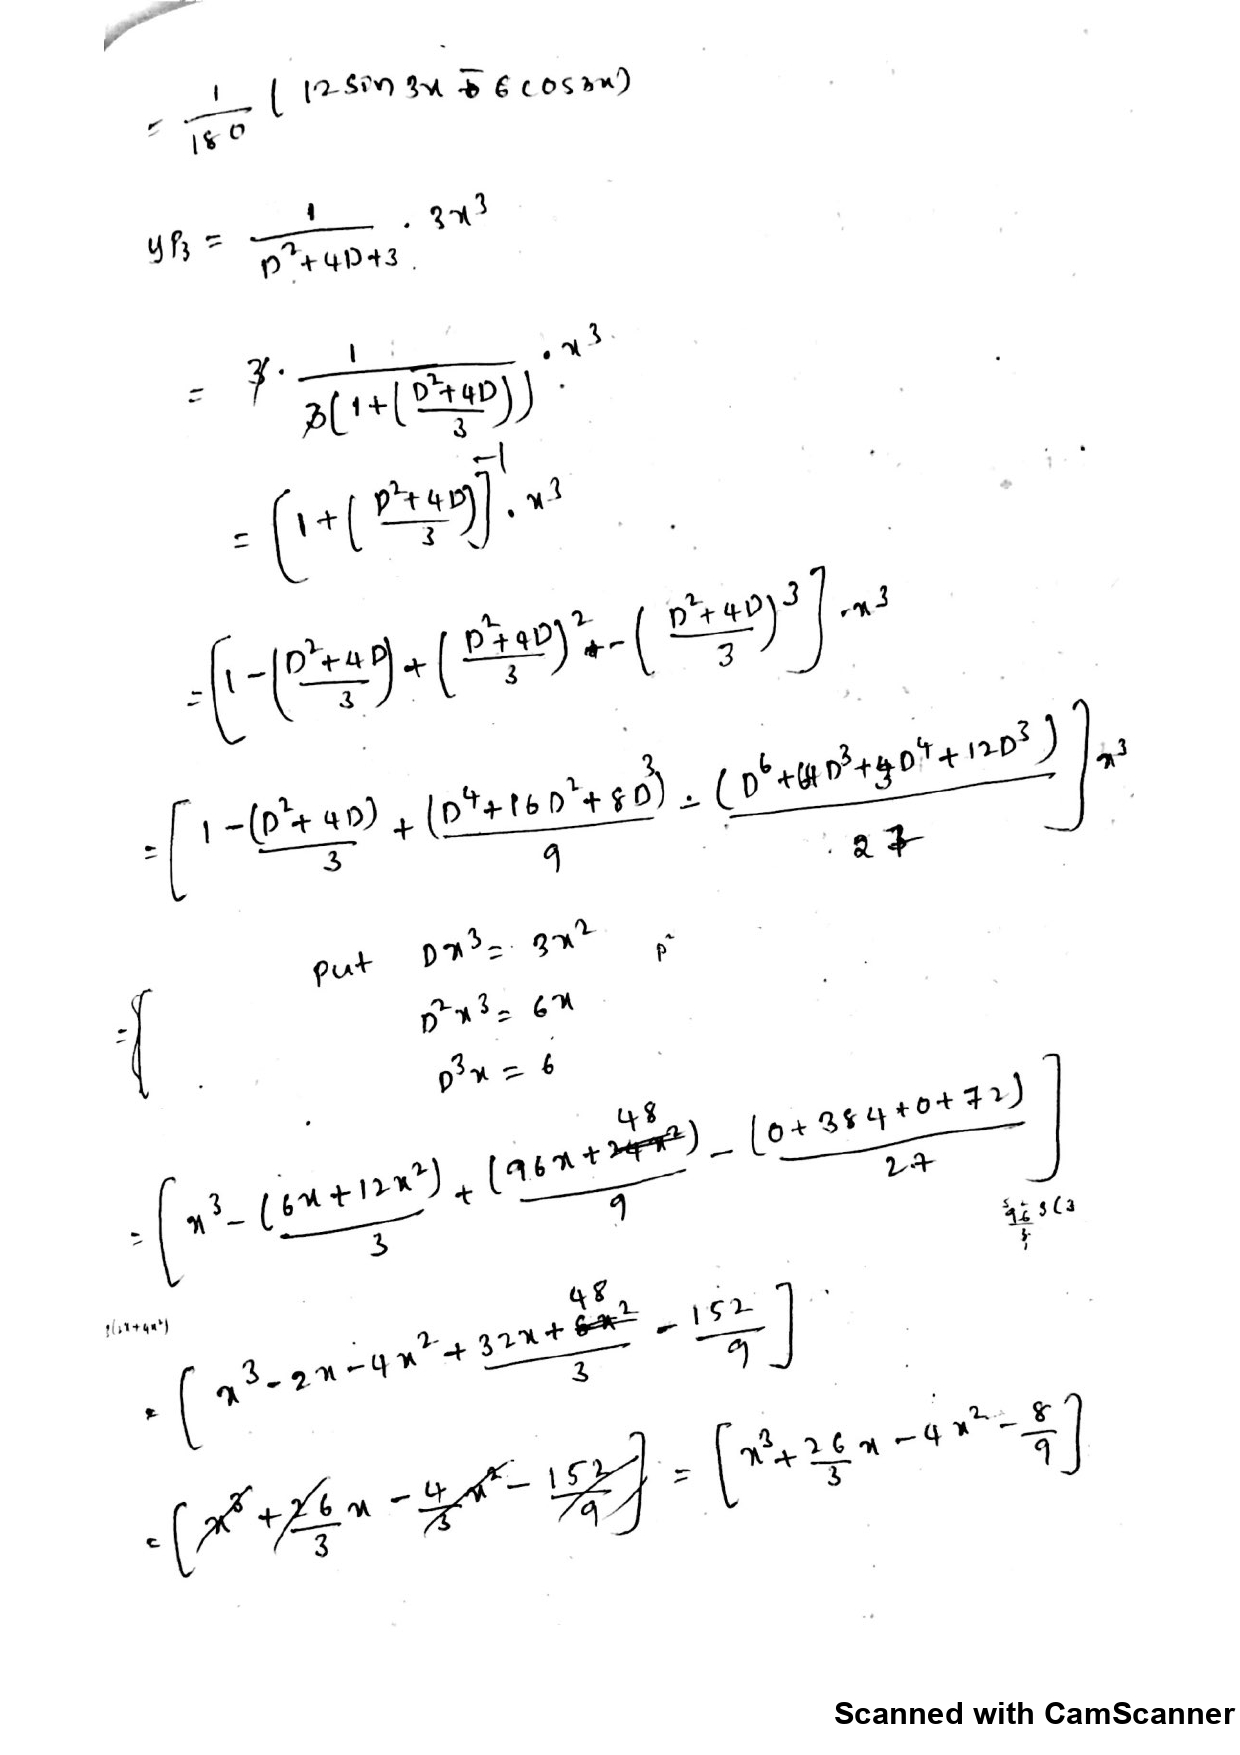 = 1/180 ( 12 sin 3x - 6 cos 3x)
yP₃ = 1/(D²+4D+3) · 3x³
= 3 · 1/(3(1+((D²+4D)/3))) · x³
= [1+((D²+4D)/3)]⁻¹ · x³
= [1-((D²+4D)/3)+((D²+4D)/3)² - ((D²+4D)/3)³] · x³
= [1-(D²+4D)/3 + (D⁴+16D²+8D³)/9 - (D⁶+64D³+ D⁴+12D³)/27] x³
put Dx³ = 3x²
D²x³ = 6x
= {
D³x = 6
= [x³-(6x+12x²)/3 + (96x+48)/9 - (0+384+0+72)/27]
= [x³-2x-4x²+(32x+48)/3 - 152/9]
= [x³+26/3 x - 4/3 x² - 152/9] = [x³+26/3 x-4x²-8/9]
Scanned with CamScanner